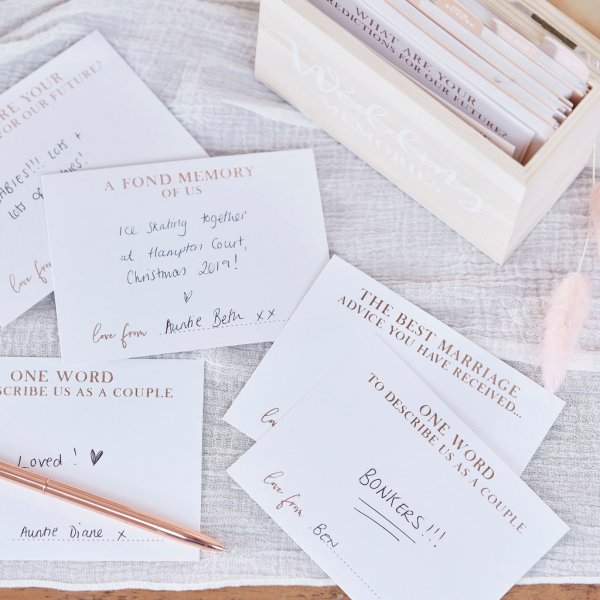 ARE YOUR
FOR OUR FUTURE?
BABIES!!! LOTS +
LOTS OF
love from
A FOND MEMORY
OF US
Ice skating together
at Hampton Court,
Christmas 2019!
love from Auntie Beth xx
ONE WORD
SCRIBE US AS A COUPLE
Loved!
Auntie Diane x
WHAT ARE YOUR
PREDICTIONS FOR OUR FUTURE?
Wedding
MEMORIES
THE BEST MARRIAGE
ADVICE YOU HAVE RECEIVED...
ONE WORD
TO DESCRIBE US AS A COUPLE
BONKERS!!!
love from BEN